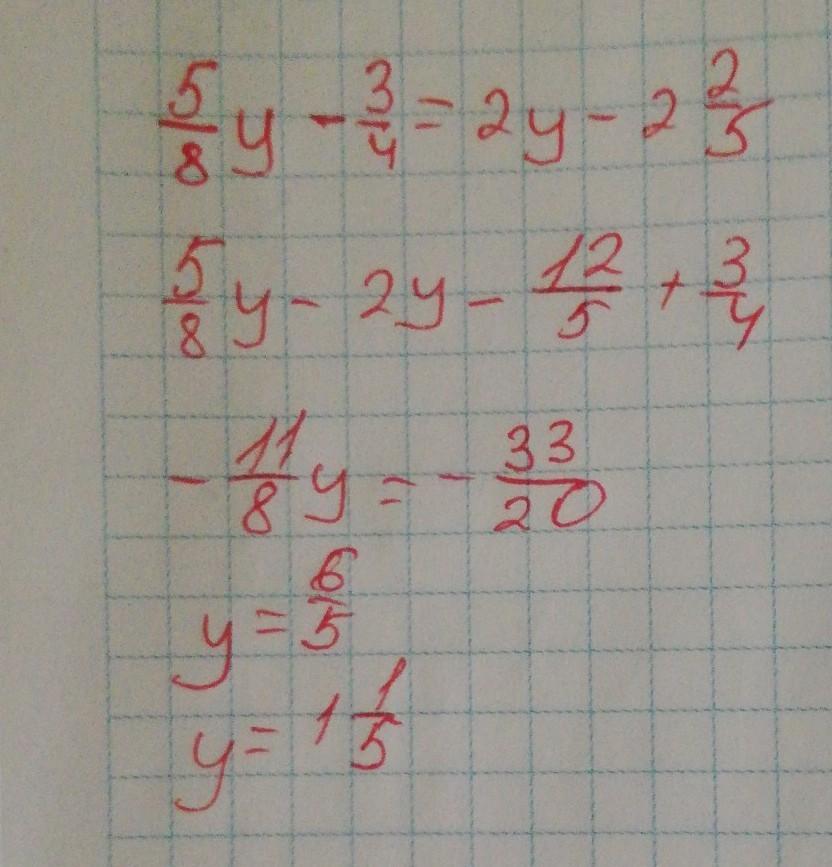 5/8 y - 3/4 = 2y - 2 2/5
5/8 y - 2y - 12/5 + 3/4
- 11/8 y = - 33/20
y = 6/5
y = 1 1/5